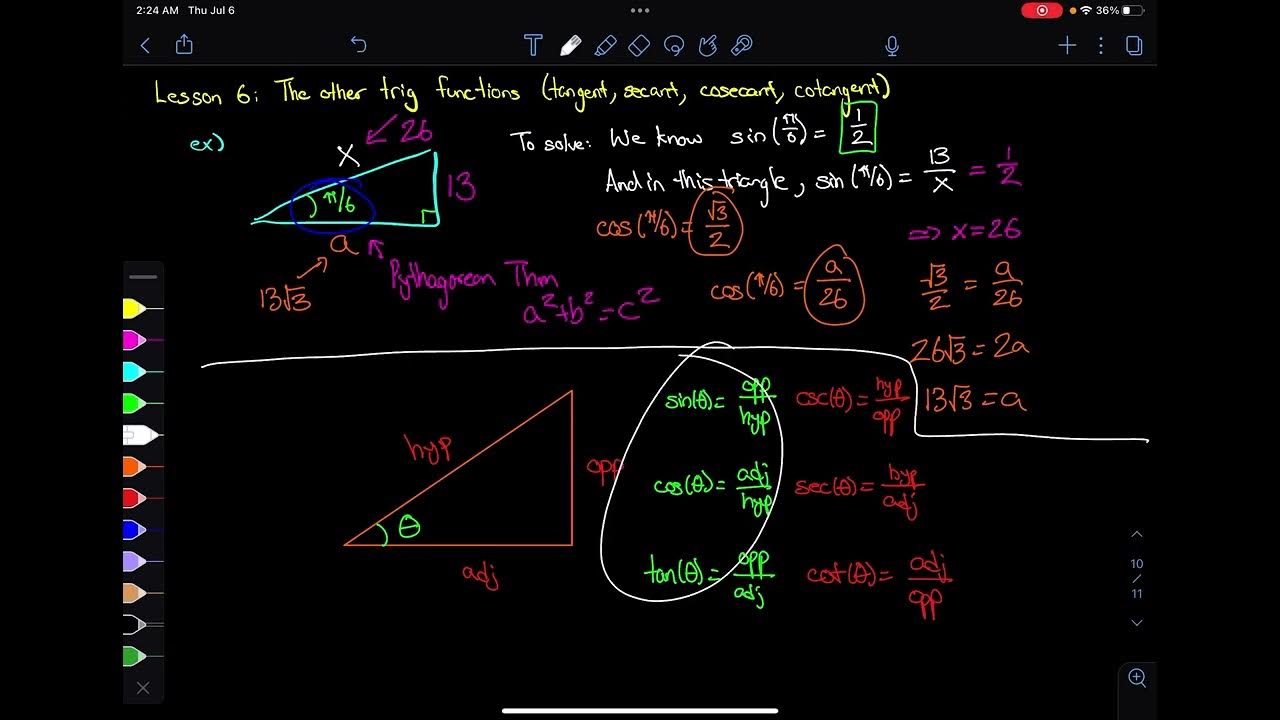 2:24 AM Thu Jul 6
36%
Lesson 6: The other trig functions (tangent, secant, cosecant, cotangent)
ex)
26
x
13
π/6
a
13√3
Pythagorean Thm
a²+b²=c²
To solve: We know sin(π/6) = 1/2
And in this triangle, sin(π/6) = 13/x = 1/2
cos(π/6) = √3/2
⇒ x=26
cos(π/6) = a/26
√3/2 = a/26
26√3 = 2a
13√3 = a
hyp
opp
θ
adj
sin(θ) = opp/hyp csc(θ) = hyp/opp
cos(θ) = adj/hyp sec(θ) = hyp/adj
tan(θ) = opp/adj cot(θ) = adj/opp
10
/
11
T